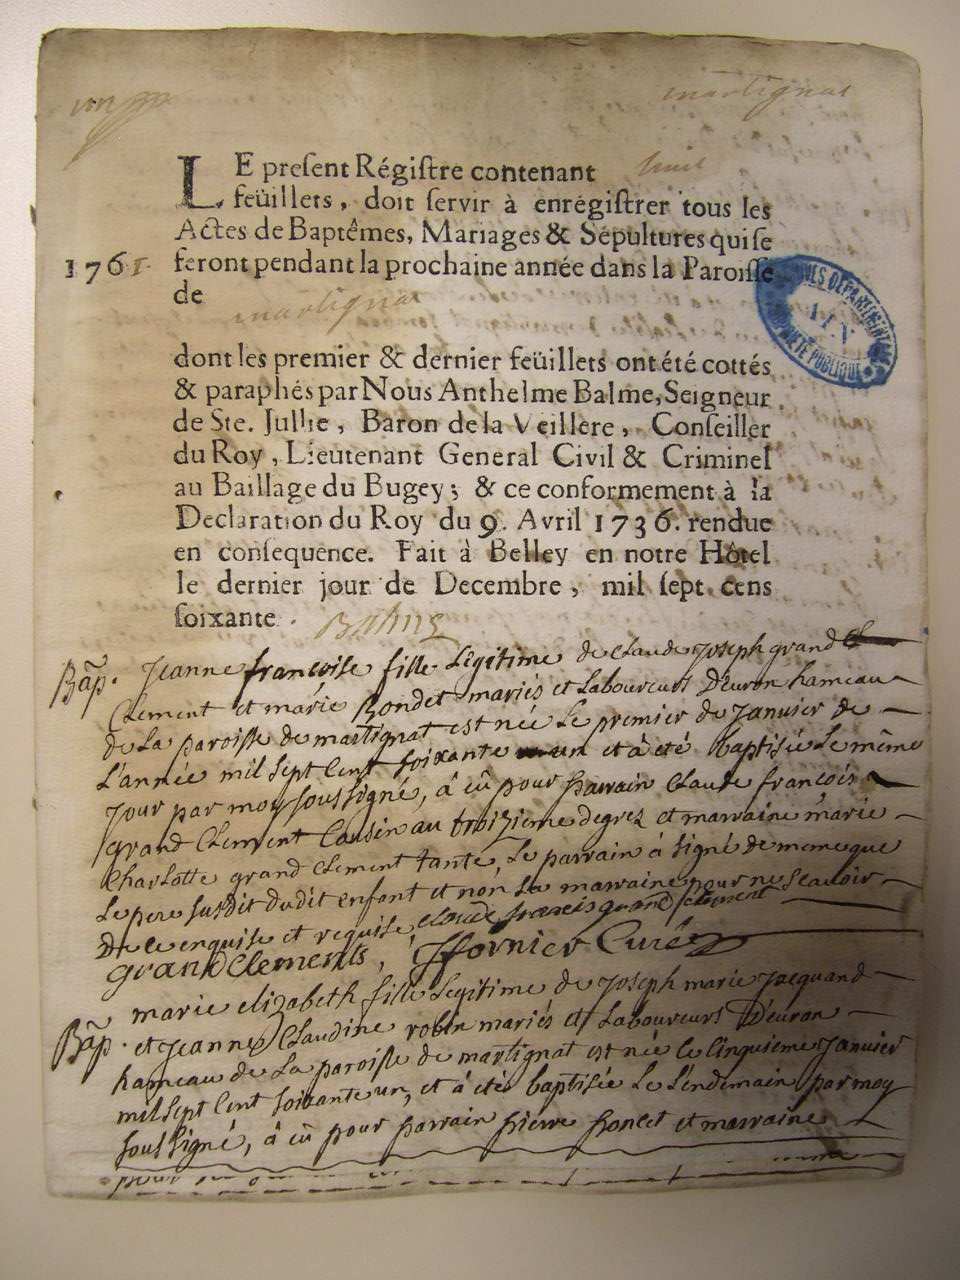 martignat
LE present Régistre contenant huit
feüillets, doit servir à enrégistrer tous les
Actes de Baptêmes, Mariages & Sépultures qui se
1761. feront pendant la prochaine année dans la Paroisse
de martignat
dont les premier & dernier feüillets ont été cottés
& paraphés par Nous Anthelme Balme, Seigneur
de Ste. Jullie, Baron de la Veillere, Conseiller
du Roy, Lieutenant General Civil & Criminel
au Baillage du Bugey; & ce conformement à la
Declaration du Roy du 9. Avril 1736. rendue
en consequence. Fait à Belley en notre Hôtel
le dernier jour de Decembre, mil sept cens
soixante. Balme
Bap. Jeanne francoise fille Legitime de claude Joseph grand
Clement et marie Bondet mariés et Laboureurs D'evron hameau
de La paroisse de martignat est née Le premier de Janvier de
L'année mil sept Cent soixante un et à été baptisée Le même
Jour par moy soussigné, à eû pour parrain Claude francois
grand Clement Cousin au troizieme degrez et marraine marie
Charlotte grand Clement tante, Le parrain à signé de meme que
Le pere susdit dudit enfant et non La marraine pour ne scavoir
De ce enquise et requise claude francois grand clement
grand Clements, Jfornier Curé
Bap. marie elizabeth fille Legitime de Joseph marie Jacquand
et Jeanne Claudine robin mariés et Laboureurs D'evron
hameau de La paroisse de martignat est née Le Cinquieme Janvier
mil sept Cent soixante un, et à été baptisée Le Lendemain par moy
soussigné, à eû pour parrain pierre poncet et marraine